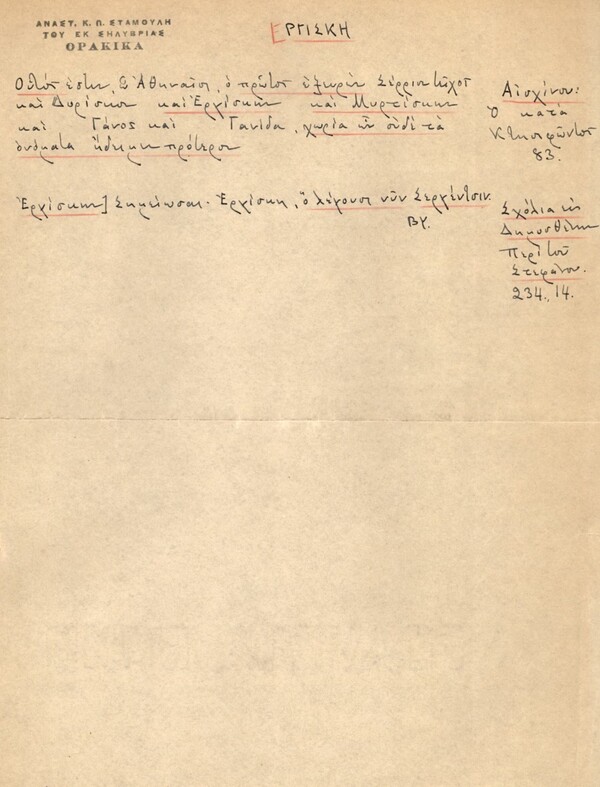 ΑΝΑΣΤ. Κ. Π. ΣΤΑΜΟΥΛΗ
ΤΟΥ ΕΚ ΣΗΛΥΒΡΙΑΣ
ΘΡΑΚΙΚΑ
ΕΡΓΙΣΚΗ
Οὗτός ἐστιν, ὦ Ἀθηναῖοι, ὁ πρῶτος ἐξευρὼν Σέρριον τεῖχος
καὶ Δορίσκον καὶ Ἐργίσκην καὶ Μυρτίσκην
καὶ Γάνος καὶ Γανίδα, χωρία ὧν οὐδὲ τὰ
ὀνόματα ᾔδειμεν πρότερον
Αἰσχίνου:
Ὁ κατὰ
Κτησιφῶντος
83.
Ἐργίσκην] Σημείωσαι. Ἐργίσκη, ὃ λέγουσι νῦν Σεργέντσιν.
ΒΥ.
Σχόλια εἰς
Δημοσθένην
Περὶ τοῦ
Στεφάνου.
234., 14.